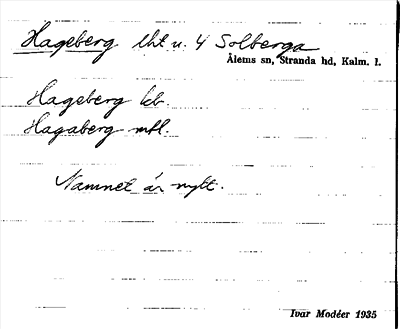 Hageberg lht u. 4 Solberga
Ålems sn, Stranda hd, Kalm. l.
Hageberg kb.
Hagaberg mtl.
Namnet är nytt.
Ivar Modéer 1935